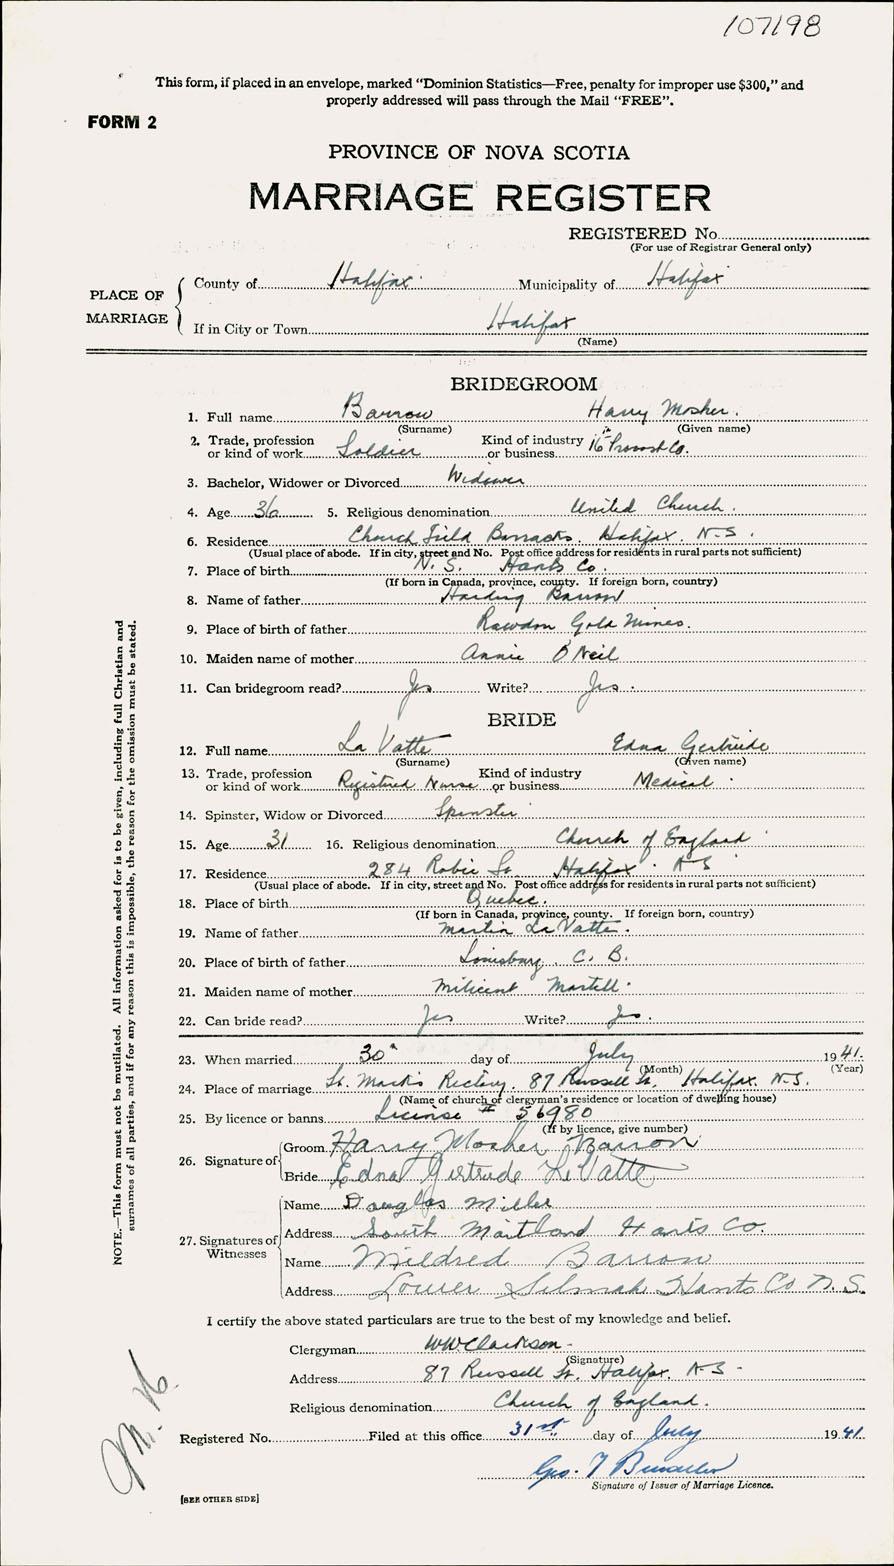 107198
This form, if placed in an envelope, marked "Dominion Statistics—Free, penalty for improper use $300," and
properly addressed will pass through the Mail "FREE".
FORM 2
PROVINCE OF NOVA SCOTIA
MARRIAGE REGISTER
REGISTERED No.
(For use of Registrar General only)
PLACE OF MARRIAGE
County of Halifax Municipality of Halifax
If in City or Town Halifax
(Name)
BRIDEGROOM
1. Full name Barron Harry Mosher.
(Surname) (Given name)
2. Trade, profession or kind of work Soldier Kind of industry or business 16th Provost Co.
3. Bachelor, Widower or Divorced Widower
4. Age 36 5. Religious denomination United Church.
6. Residence Church Field Barracks. Halifax. N.S.
(Usual place of abode. If in city, street and No. Post office address for residents in rural parts not sufficient)
7. Place of birth N.S. Hants Co.
(If born in Canada, province, county. If foreign born, country)
8. Name of father Harding Barron
9. Place of birth of father Rawdon Gold Mines.
10. Maiden name of mother Annie O'Neil
11. Can bridegroom read? Yes Write? Yes.
BRIDE
12. Full name La Vatte Edna Gertrude
(Surname) (Given name)
13. Trade, profession or kind of work Registered Nurse Kind of industry or business Medical.
14. Spinster, Widow or Divorced Spinster
15. Age 31 16. Religious denomination Church of England
17. Residence 284 Robie St. Halifax. N.S.
(Usual place of abode. If in city, street and No. Post office address for residents in rural parts not sufficient)
18. Place of birth Quebec.
(If born in Canada, province, county. If foreign born, country)
19. Name of father Martin La Vatte.
20. Place of birth of father Louisburg. C. B.
21. Maiden name of mother Milicent Martell.
22. Can bride read? Yes Write? Yes.
23. When married 30th day of July 1941.
(Month) (Year)
24. Place of marriage St. Mark's Rectory. 87 Russell St. Halifax. N.S.
(Name of church or clergyman's residence or location of dwelling house)
25. By licence or banns License # 56980
(If by licence, give number)
26. Signature of
Groom Harry Mosher Barron
Bride Edna Gertrude LaVatte
27. Signatures of Witnesses
Name Douglas Miller
Address South Maitland Hants Co.
Name Mildred Barron
Address Lower Selmah Hants Co N.S.
I certify the above stated particulars are true to the best of my knowledge and belief.
Clergyman WW Clarkson
(Signature)
Address 87 Russell St. Halifax. N.S.
Religious denomination Church of England.
Registered No. Filed at this office 31st day of July 1941
Geo. T
Signature of Issuer of Marriage Licence.
[SEE OTHER SIDE]
NOTE.—This form must not be mutilated. All information asked for is to be given, including full Christian and
surnames of all parties, and if for any reason this is impossible, the reason for the omission must be stated.